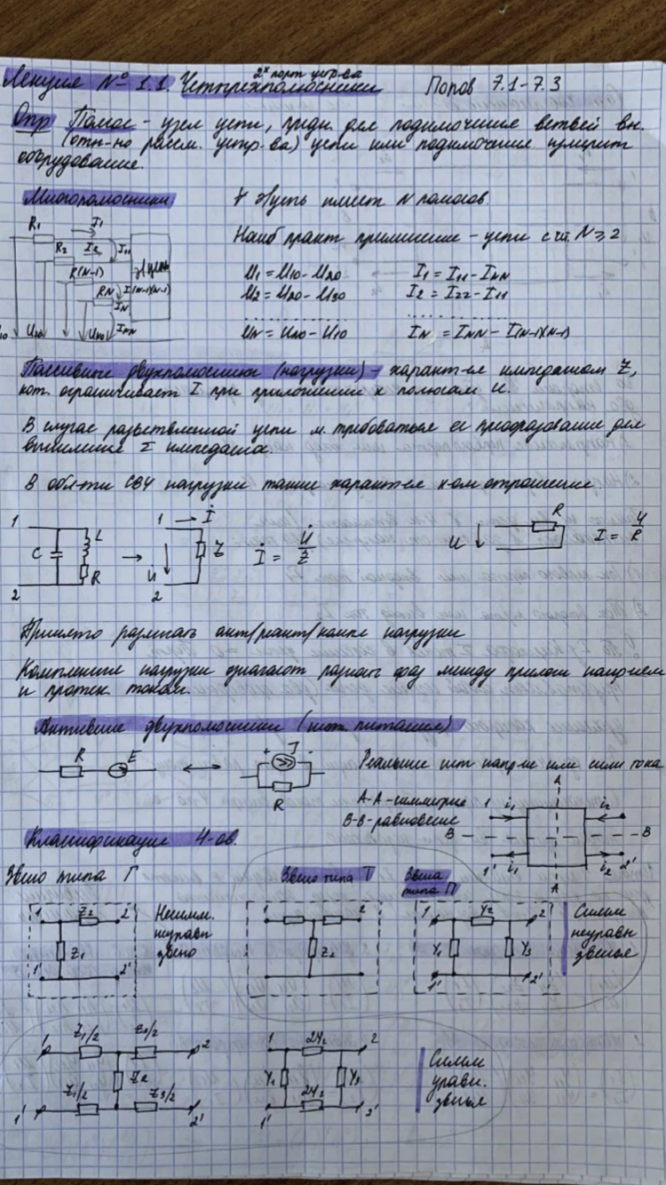 2х порт. устр-ва
Лекция № 1.1. Четырехполюсники Попов 7.1-7.3
Опр Полюс - узел цепи, предн. для подключения ветвей вн.
(отн-но рассм. устр-ва) цепи или подключения измерит
оборудования.
Многополюсники ∀ Цепь имеет N полюсов.
Наиб практ применение - цепи с чи. N ≥ 2
R1 I1
R2 I2 I11
R(N-1) Цепь
RN I(N-1)(N-1)
IN
U10 U20 UN0 INN
U1 = U10 - U20 I1 = I11 - INN
U2 = U20 - U30 I2 = I22 - I11
.......... ..........
UN = UN0 - U10 IN = INN - I(N-1)(N-1)
Пассивные двухполюсники (нагрузки) - характ-ся импедансом Z,
кот. ограничивает I при приложении к полюсам U.
В случае разветвленной цепи м. требоваться ее преобразование для
вычисления Σ импеданса.
В обл-ти СВЧ нагрузки также характ-ся к-ом отражения
1 C L R 2
1 İ U̇ Z 2
İ = U̇/Z
U R
I = U/R
Принято различать акт/реакт/компл нагрузки
Комплексные нагрузки влагают разность фаз между прилож напр-ем
и протек. током.
Активные двухполюсники (ист. питания)
R E
J + -
R
Реальные ист напр-ия или силы тока
A-A - симметрия
B-B - равновесие
A
1 i1 i2 2
B B
1' i1 i2 2'
A
Классификация 4-ов.
Звено типа Г
Звено типа T
Звена
типа П
1 Z2 2
Z1
1' 2'
Несимм.
неуравн
звено
1 2
Z2
1 Y2 2
Y1 Y3
1' 2'
Симм
неуравн
звенья
1 Z1/2 Z3/2 2
Z2
1' Z1/2 Z3/2 2'
1 2Y2 2
Y1 Y3
1' 2Y2 2'
Симм
уравн.
звенья